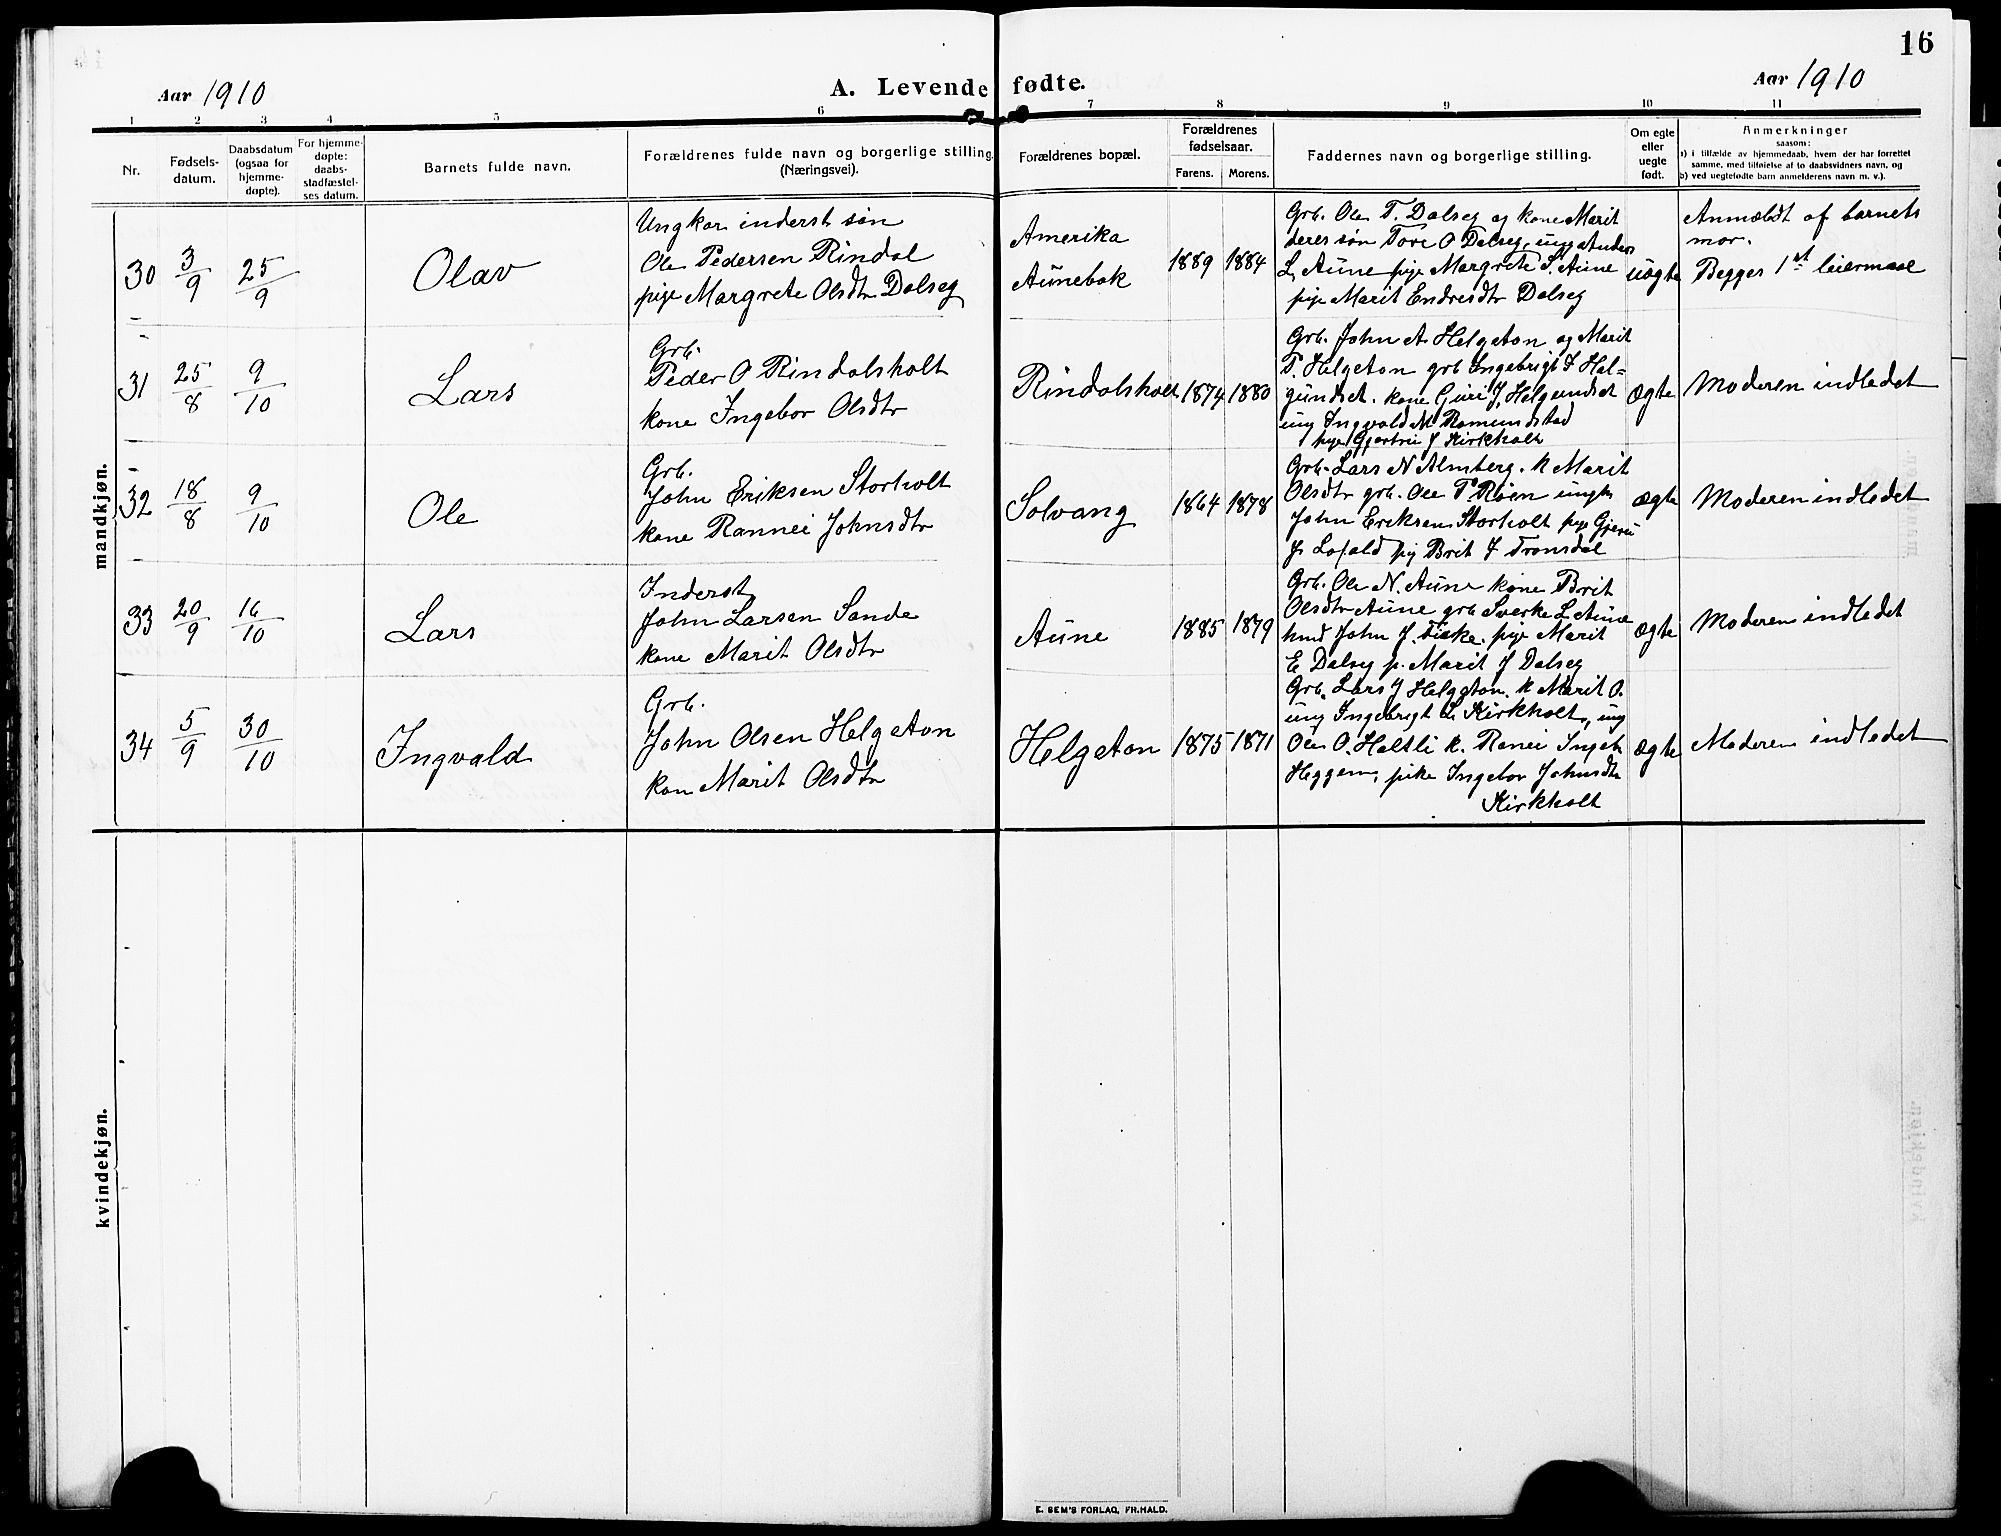 16
Aar 1910
A. Levende fødte.
Aar 1910
1 2 3 4 5 6 7 8 9 10 11
Nr.
Fødsels-
datum.
Daabsdatum
(ogsaa for
hjemme-
døpte).
For hjemme-
døpte:
daabs-
stadfæstel-
ses datum.
Barnets fulde navn.
Forældrenes fulde navn og borgerlige stilling.
(Næringsvei).
Forældrenes bopæl.
Forældrenes
fødselsaar.
Farens. Morens.
Faddernes navn og borgerlige stilling.
Om egte
eller
uegte
født.
Anmerkninger
saasom:
a) i tilfælde av hjemmedaab, hvem der har forrettet
samme, med tilføielse af to daabsvidners navn, og
b) ved uegtefødte barn anmelderens navn m. v.).
mandkjøn.
30 3/9 25/9 Olav
Ungkar inderst søn
Ole Pedersen Rindal
pige Margrete Olsdtr Dalseg
Amerika
Aunebak
1889 1884
Grb. Ole T. Dalseg og kone Marit
deres søn Tore O Dalseg, ung Anders
L Aune pige Margrete S. Aune
pige Marit Endresdtr Dalseg
uægte
Anmeldt af barnets
mor.
Begges 1st leiermaal
31 25/8 9/10 Lars
Grb.
Peder O Rindalsholt
kone Ingebor Olsdtr
Rindalsholt 1874 1880
Grb. John A Helgeton og Marit
T. Helgeton grb Ingebrigt I Hel-
gundset. kone Guri J. Helgundset
ung Ingvald M Romundstad
pige Gjertru J Kirkholt
ægte
Moderen indledet
32 18/8 9/10 Ole
Grb.
John Eriksen Storholt
kone Rannei Johnsdtr
Solvang 1864 1878
Grb. Lars N Almberg. K Marit
Olsdtr grb. Ole P. Røen ungk
John Eriksen Storholt pige Gjeru
J. pig Brit J Tronsdal
ægte
Moderen indledet
33 20/9 16/10 Lars
Inderst
John Larsen Sande
kone Marit Olsdtr
Aune 1885 1879
Grb. Ole N. Aune kone Brit
Olsdtr Aune grb Sverke L Aune
John J. Fiske. pige Marit
E Dalseg p. Marit J Dalseg
ægte
Moderen indledet
34 5/9 30/10 Ingvald
Grb.
John Olsen Helgeton
kon Marit Olsdtr
Helgeton 1875 1871
Grb. Lars J Helgeton. K Marit O.
ung Ingebrigt L Kirkholt, ung
Ole O. Heltli K. Ranei Ingeb
Heggem, pike Ingebor Johnsdtr
Kirkholt
ægte
Moderen indledet
kvindekjøn.
E. SEM'S FORLAG, FR.HALD.